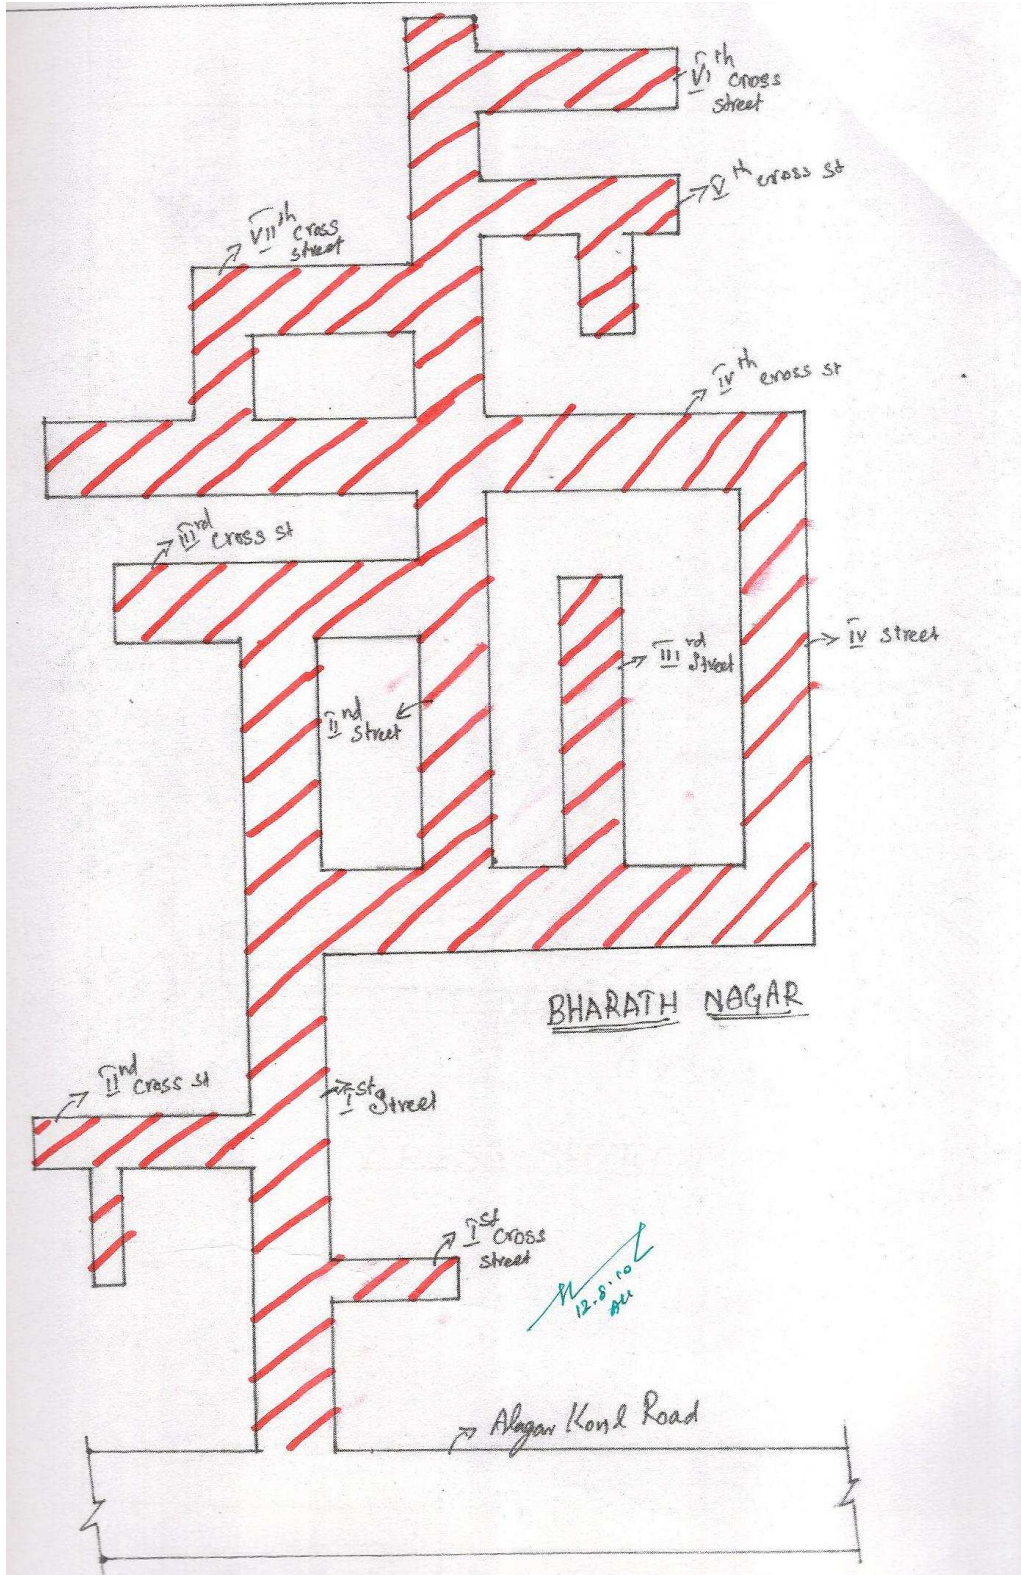 VIth
cross
street
Vth cross st
VIIth
cross
street
IVth cross st
IIIrd
cross st
IV street
IIIrd
Street
IInd
street
BHARATH NAGAR
IInd
cross st
Ist
Street
Ist
cross
street
12.8.10
Road